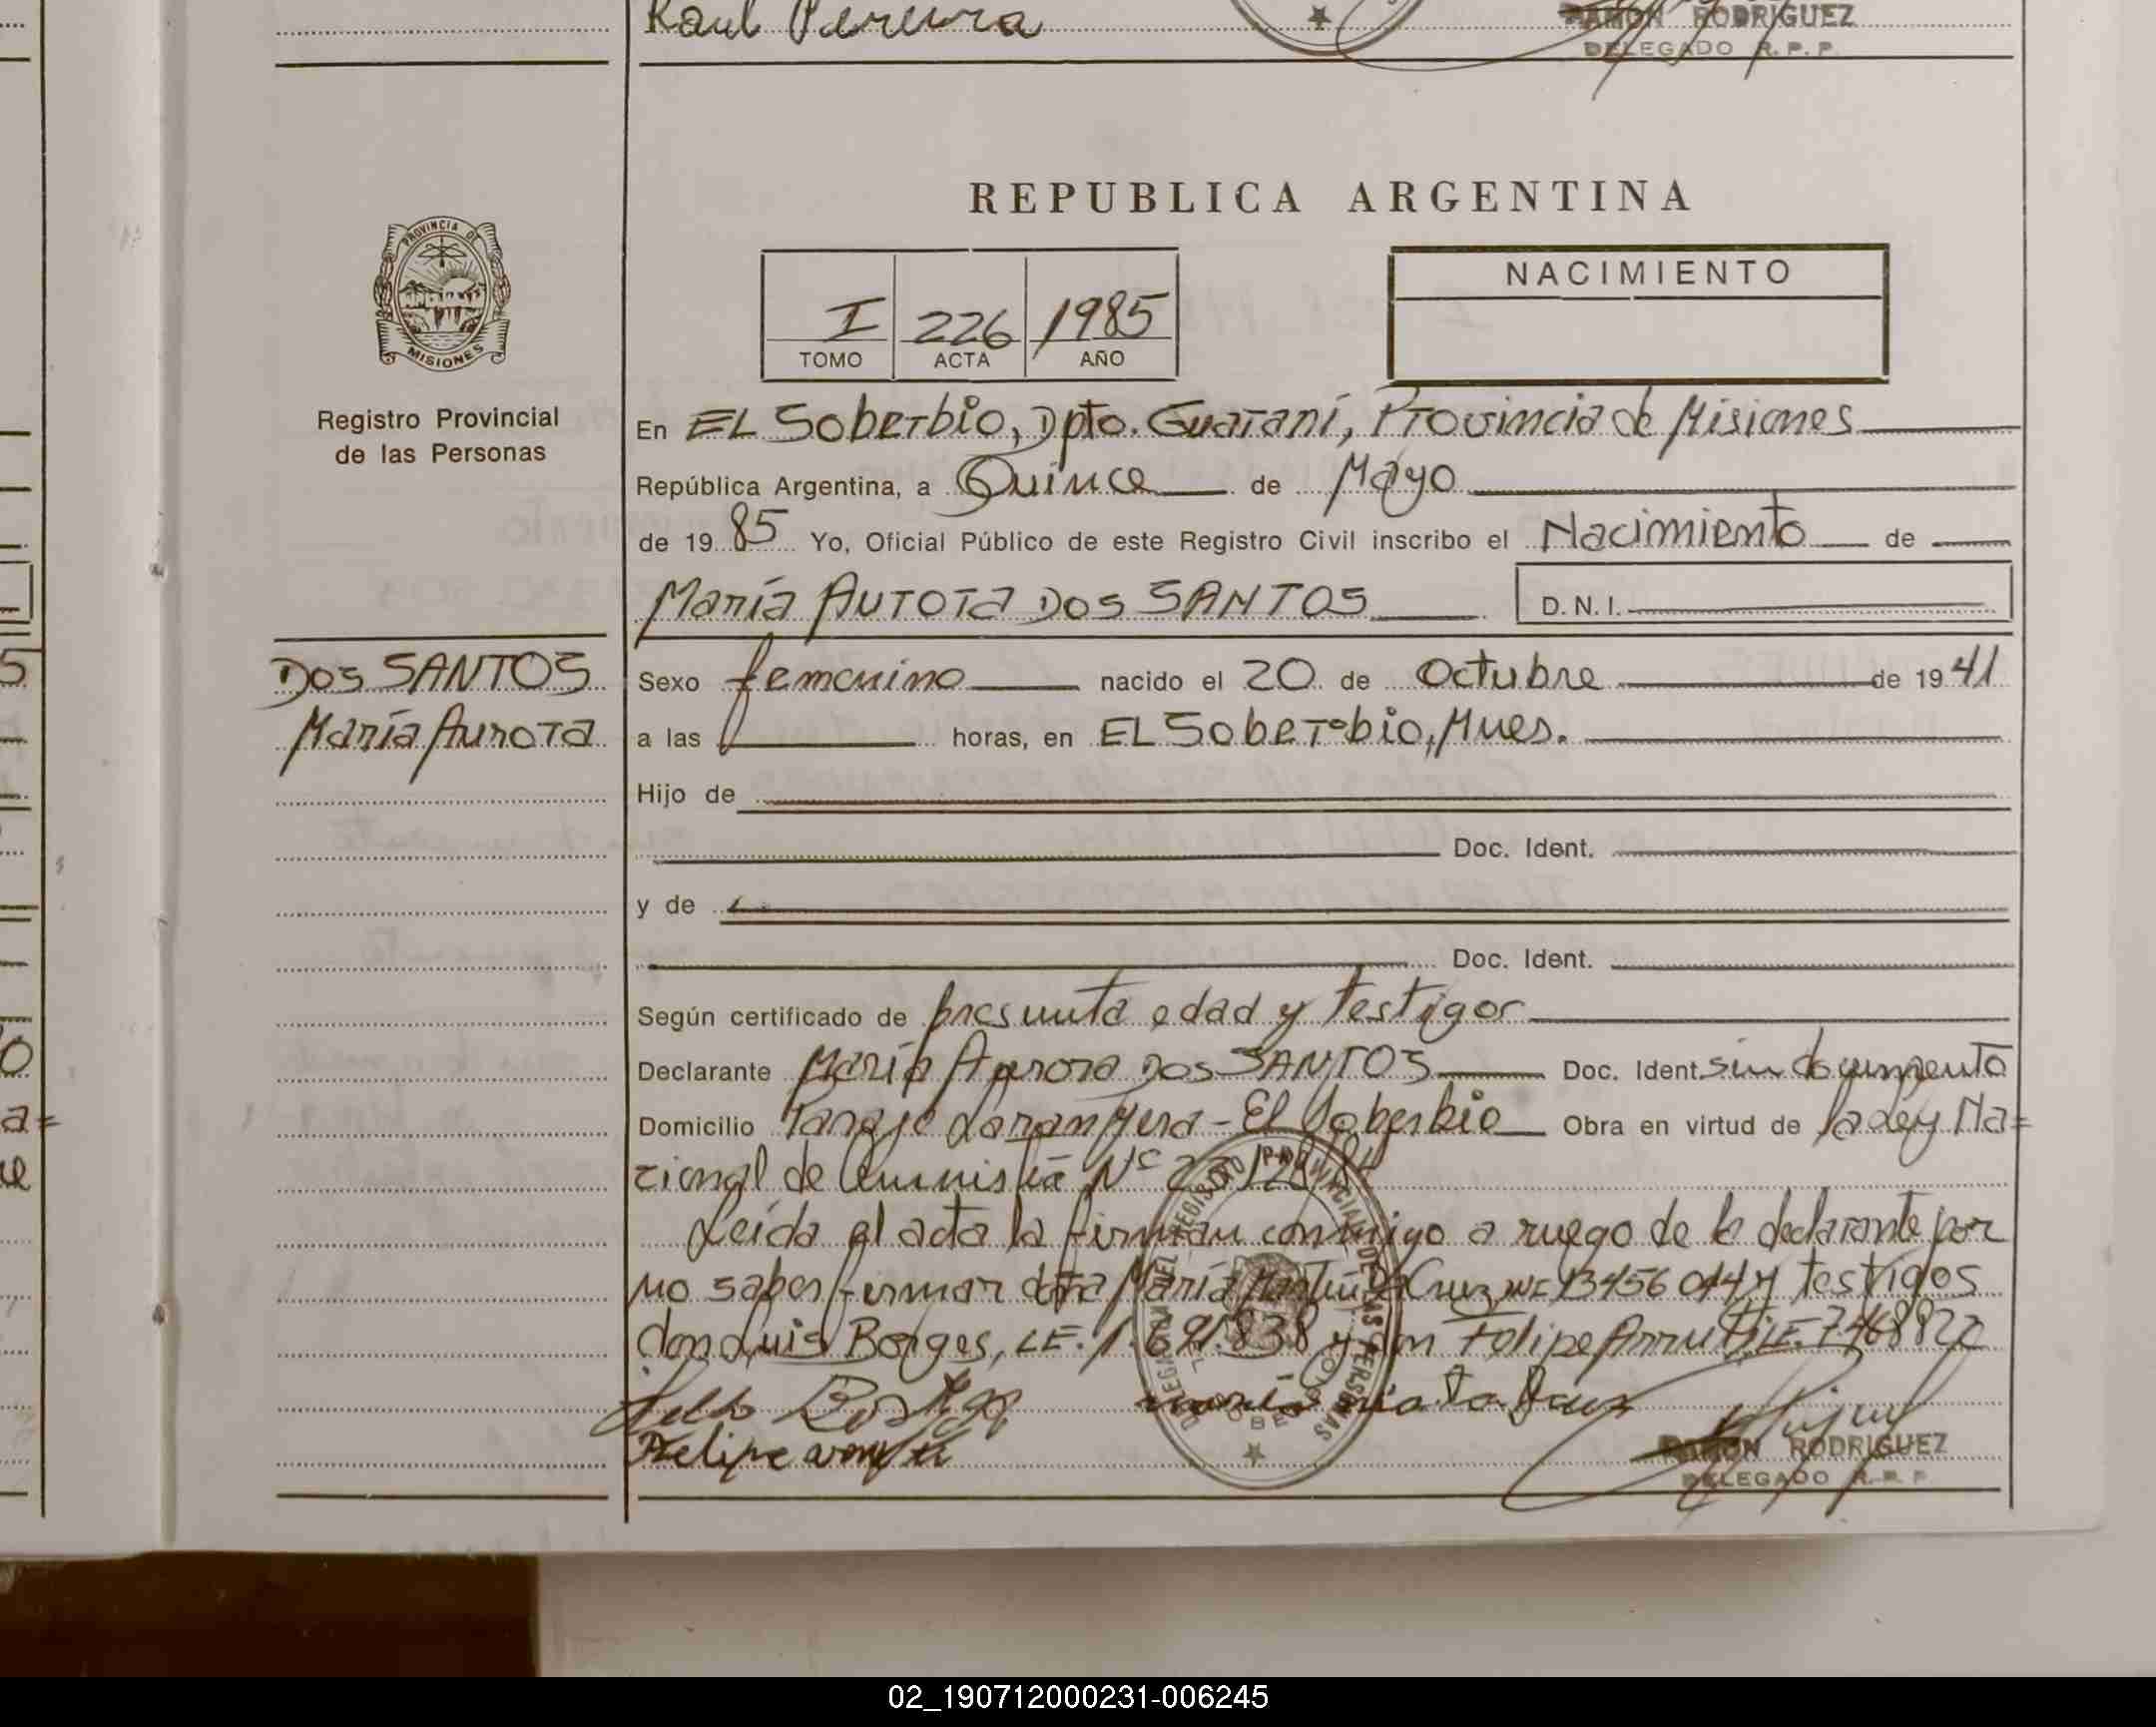 Raul Pereira
RAMON RODRIGUEZ
DELEGADO R. P. P.
REPUBLICA ARGENTINA
PROVINCIA DE
MISIONES
Registro Provincial
de las Personas
I 226 1985
TOMO ACTA AÑO
NACIMIENTO
En EL Soberbio, Dpto. Guaraní, Provincia de Misiones
República Argentina, a Quince de Mayo
de 1985 Yo, Oficial Público de este Registro Civil inscribo el Nacimiento de
María Aurora DOS SANTOS D. N. I.
DOS SANTOS
María Aurora
Sexo femenino nacido el 20 de Octubre de 1941
a las horas, en EL Soberbio, Mnes.
Hijo de
Doc. Ident.
y de
Doc. Ident.
Según certificado de presunta edad y testigos
Declarante María Aurora DOS SANTOS Doc. Ident. sin documento
Domicilio Paraje - El Soberbio Obra en virtud de la Ley Na=
cional de Amnistía Nº
Leída el acta la firman conmigo a ruego de la declarante por
no saber firmar doña María Da Cruz 13456044 y testigos
don Luis Borges, LE. 1.691.838 y don Felipe LE.
Felipe
RAMON RODRIGUEZ
DELEGADO R. P. P.
DELEGACION DEL REGISTRO PROVINCIAL DE LAS PERSONAS
EL SOBERBIO
02_190712000231-006245